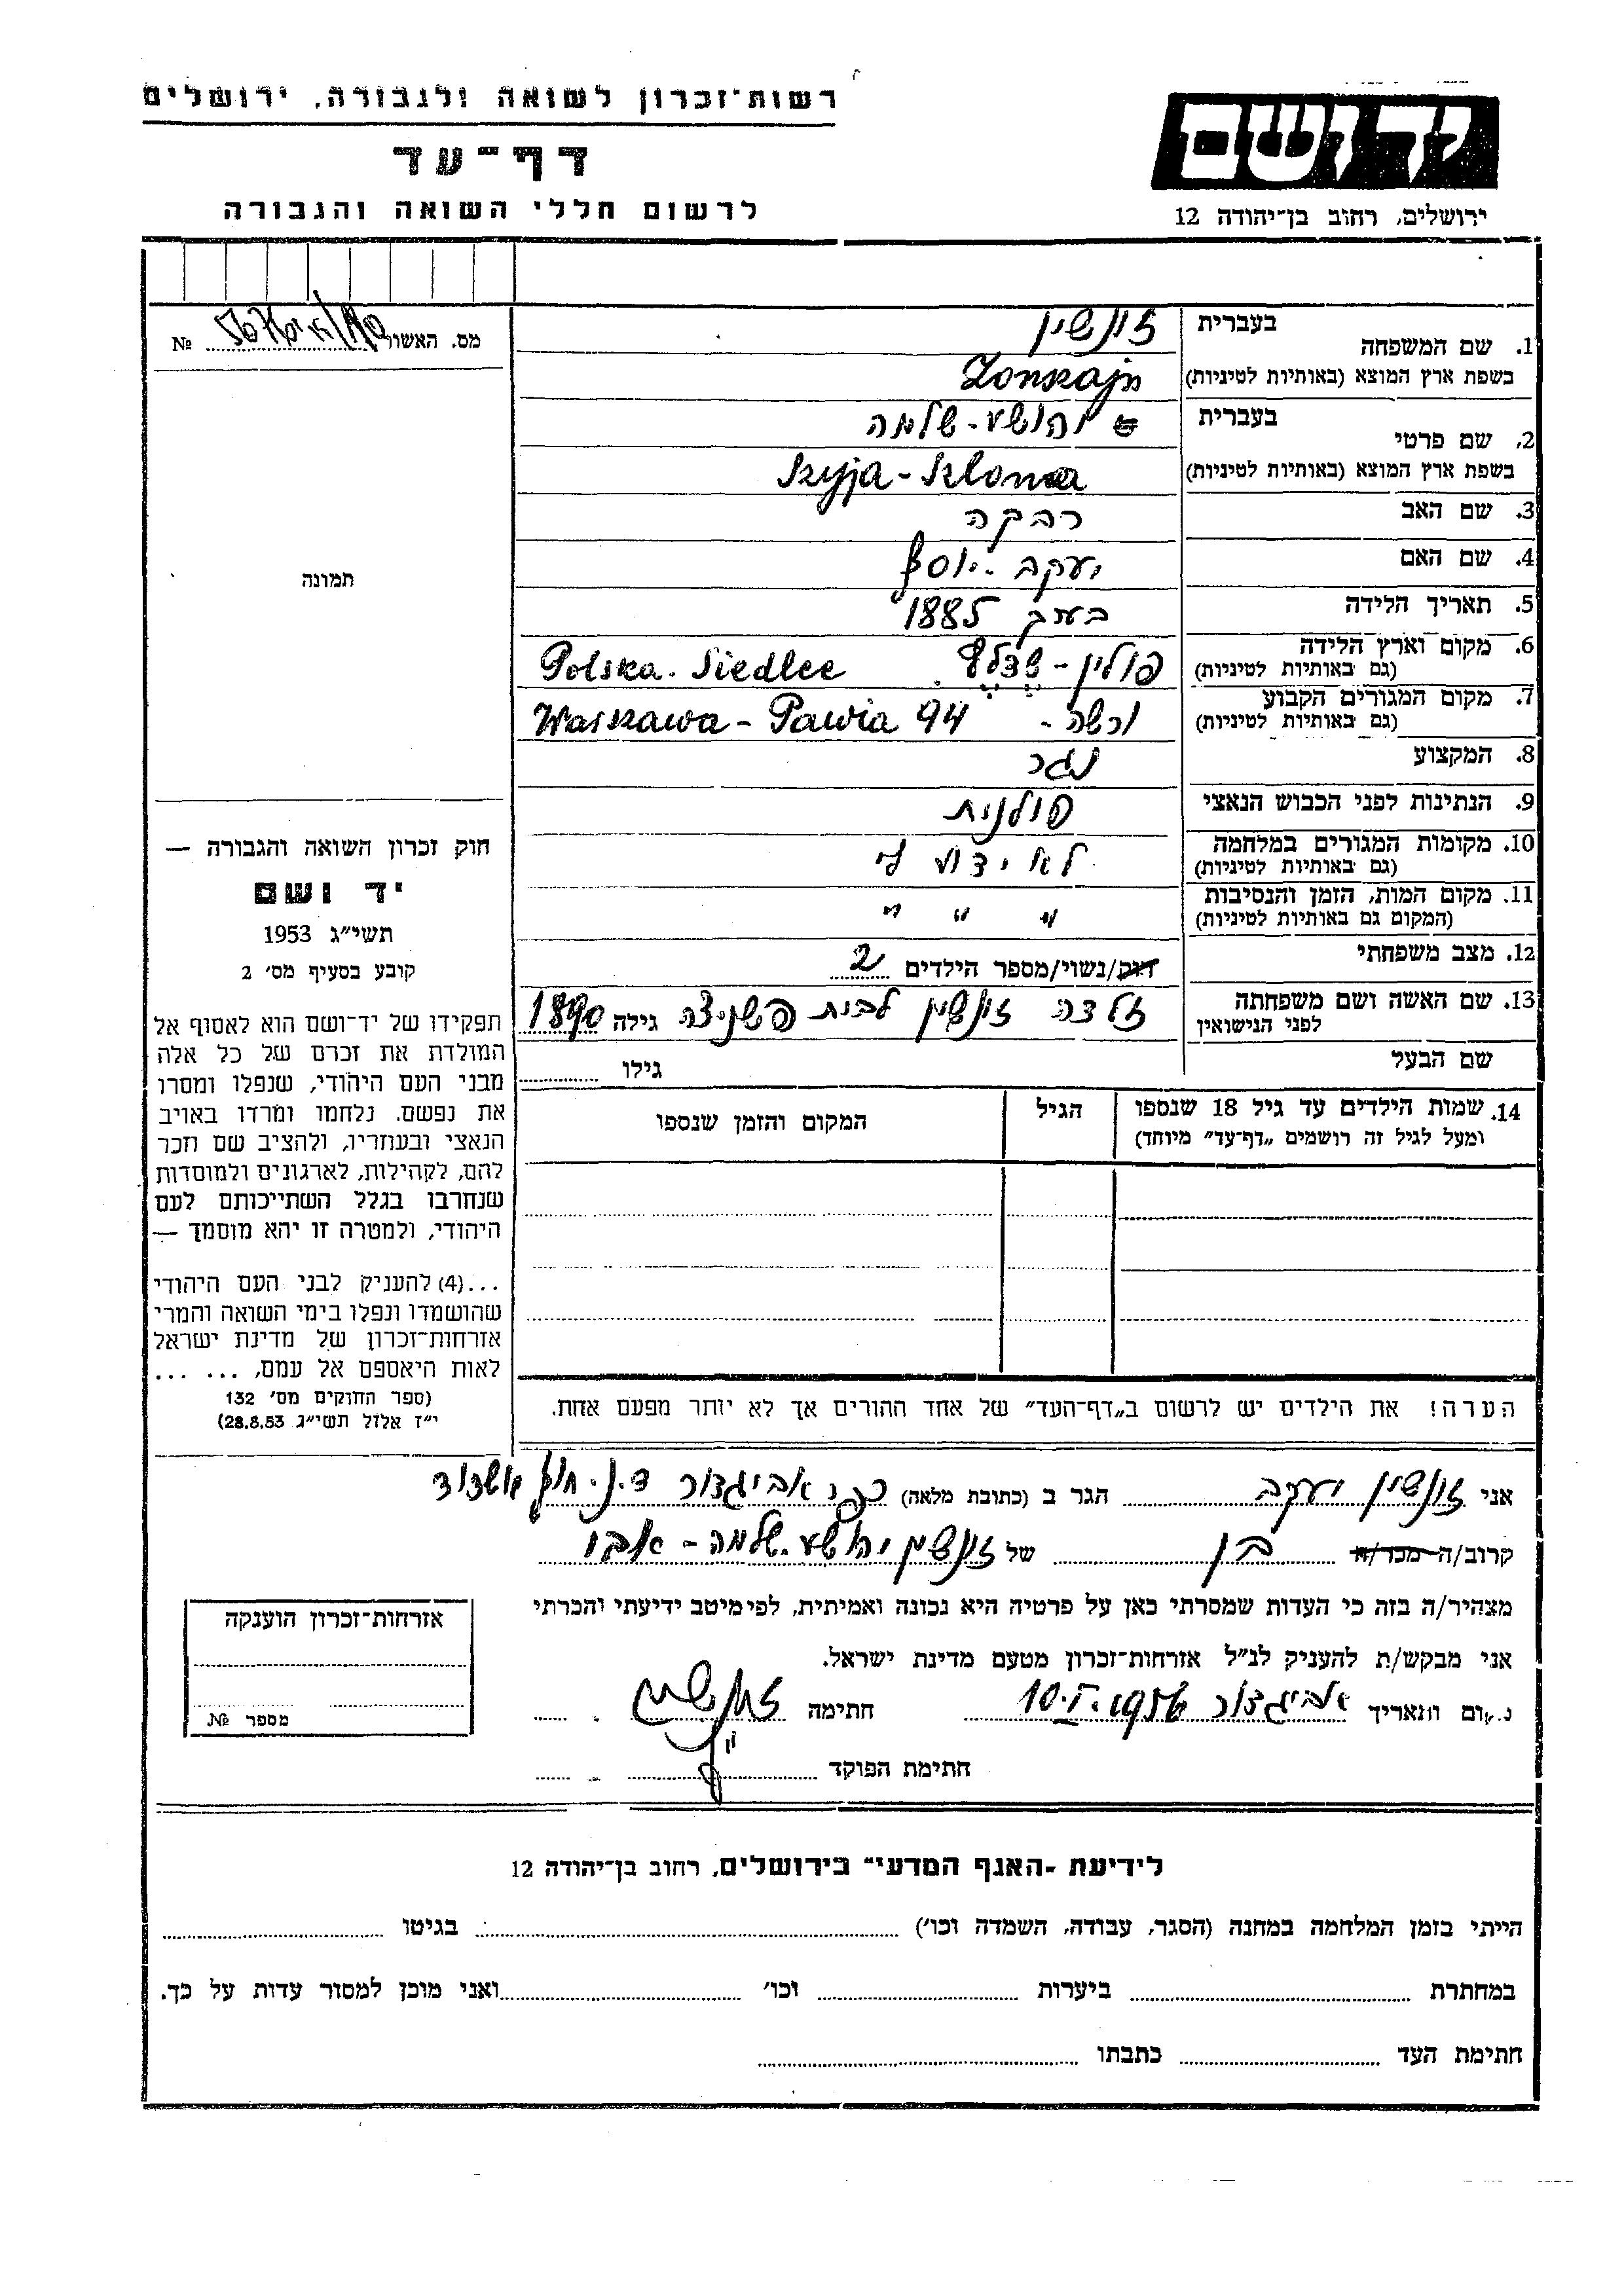 רשות־זכרון לשואה ולגבורה, ירושלים
דף־עד
לרשום חללי השואה והגבורה
יד ושם
ירושלים, רחוב בן־יהודה 12
מס. האשור № 
1. שם המשפחה בעברית זונשין
בשפת ארץ המוצא (באותיות לטיניות) Zonszajn
2. שם פרטי בעברית יהושע - שלמה
בשפת ארץ המוצא (באותיות לטיניות) Szyja - Szloma
3. שם האב רבקה
4. שם האם יעקב - יוסף
5. תאריך הלידה בערך 1885
6. מקום וארץ הלידה (גם באותיות לטיניות) פולין - שדלץ. Polska. Siedlce
7. מקום המגורים הקבוע (גם באותיות לטיניות) ורשה - Warszawa - Pawia 94
8. המקצוע נגר
9. הנתינות לפני הכבוש הנאצי פולנית
10. מקומות המגורים במלחמה (גם באותיות לטיניות) לא ידוע לי
11. מקום המות, הזמן והנסיבות (המקום גם באותיות לטיניות) " " "
12. מצב משפחתי רווק/נשוי/מספר הילדים 2
13. שם האשה ושם משפחתה לפני הנישואין זלדה זונשין לבית גילה 1890
שם הבעל גילו
14. שמות הילדים עד גיל 18 שנספו (ומעל לגיל זה רושמים „דף־עד" מיוחד) הגיל המקום והזמן שנספו
תמונה
חוק זכרון השואה והגבורה —
יד ושם
תשי״ג 1953
קובע בסעיף מס׳ 2
תפקידו של יד־ושם הוא לאסוף אל
המולדת את זכרם של כל אלה
מבני העם היהודי, שנפלו ומסרו
את נפשם, נלחמו ומרדו באויב
הנאצי ובעוזריו, ולהציב שם וזכר
להם, לקהילות, לארגונים ולמוסדות
שנחרבו בגלל השתייכותם לעם
היהודי, ולמטרה זו יהא מוסמך —
...(4) להעניק לבני העם היהודי
שהושמדו ונפלו בימי השואה והמרי
אזרחות־זכרון של מדינת ישראל
לאות היאספם אל עמם, ... ...
(ספר החוקים מס׳ 132
י״ז אלול תשי״ג 28.8.53)
הערה! את הילדים יש לרשום ב„דף־העד" של אחד ההורים אך לא יותר מפעם אחת.
אני זונשין יעקב הגר ב (כתובת מלאה) כפר אביגדור ד.נ. חוף אשדוד
קרוב/ה מכר/ה בן של זונשין יהושע שלמה - אביו
מצהיר/ה בזה כי העדות שמסרתי כאן על פרטיה היא נכונה ואמיתית, לפי מיטב ידיעתי והכרתי
אני מבקש/ת להעניק לנ״ל אזרחות־זכרון מטעם מדינת ישראל.
מקום ותאריך אביגדור 10.I.1956 חתימה זונשין
חתימת הפוקד
אזרחות־זכרון הוענקה
מספר №
לידיעת „האגף המדעי" בירושלים, רחוב בן־יהודה 12
הייתי בזמן המלחמה במחנה (הסגר, עבודה, השמדה וכו׳) בגיטו
במחתרת ביערות וכו׳ ואני מוכן למסור עדות על כך.
חתימת העד כתבתו